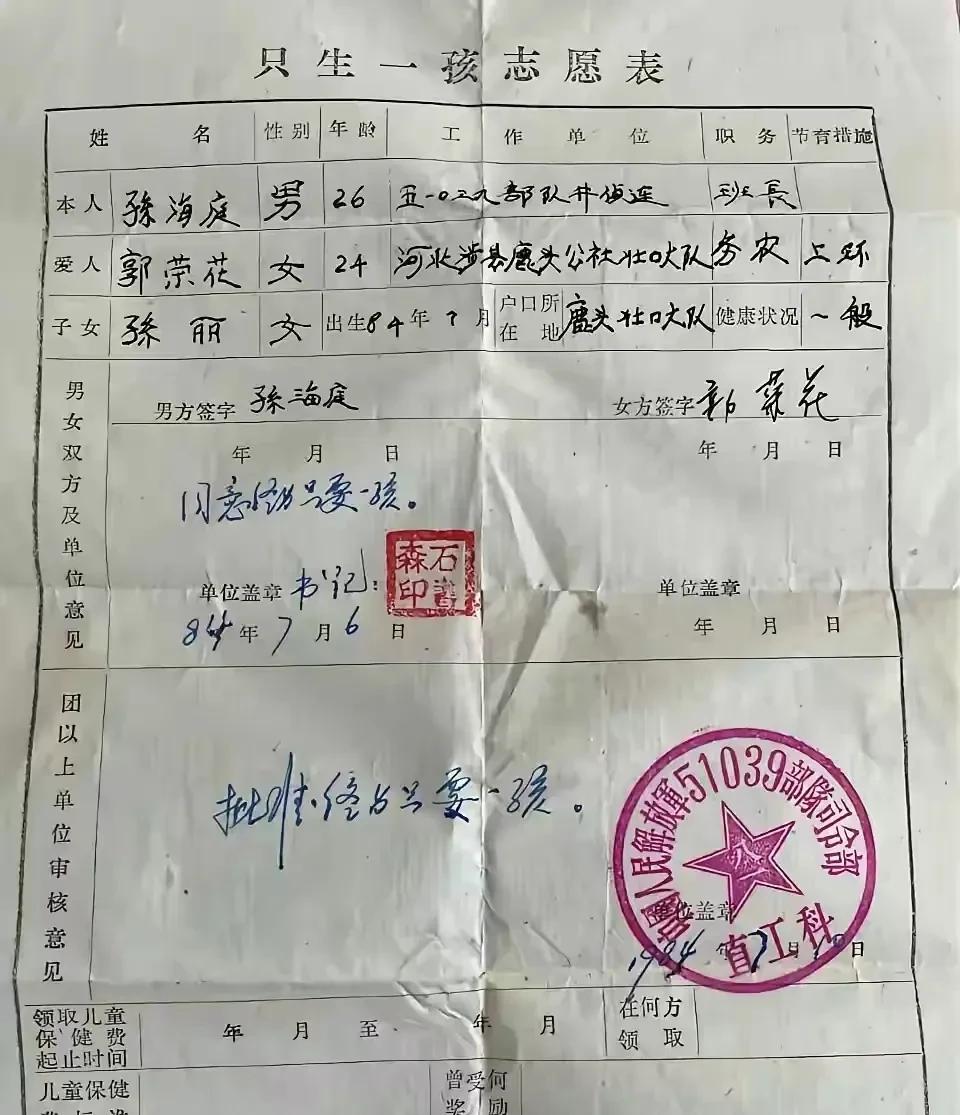 只生一孩志愿表
姓名 性别 年龄 工作单位 职务 节育措施
本人 孫海庭 男 26 五一0三九部队井侦连 班長
爱人 郭荣花 女 24 河北涉县鹿头公社壮口大队 务农 上环
子女 孫丽 女 出生84年7月 户口所在地 鹿头壮口大队 健康状况 一般
男女双方及单位意见
男方签字 孫海庭 女方签字 郭荣花
年 月 日 年 月 日
同意 只要一孩。
单位盖章 书记: 石 森印 单位盖章
84年7月6日 年 月 日
团以上单位审核意见
批准 只要一孩。
中國人民解放軍51039部隊司令部
直工科
单位盖章
1984年7月10日
领取儿童保健费起止时间 年 月 至 年 月 在何方领取
儿童保健 曾受何奖励